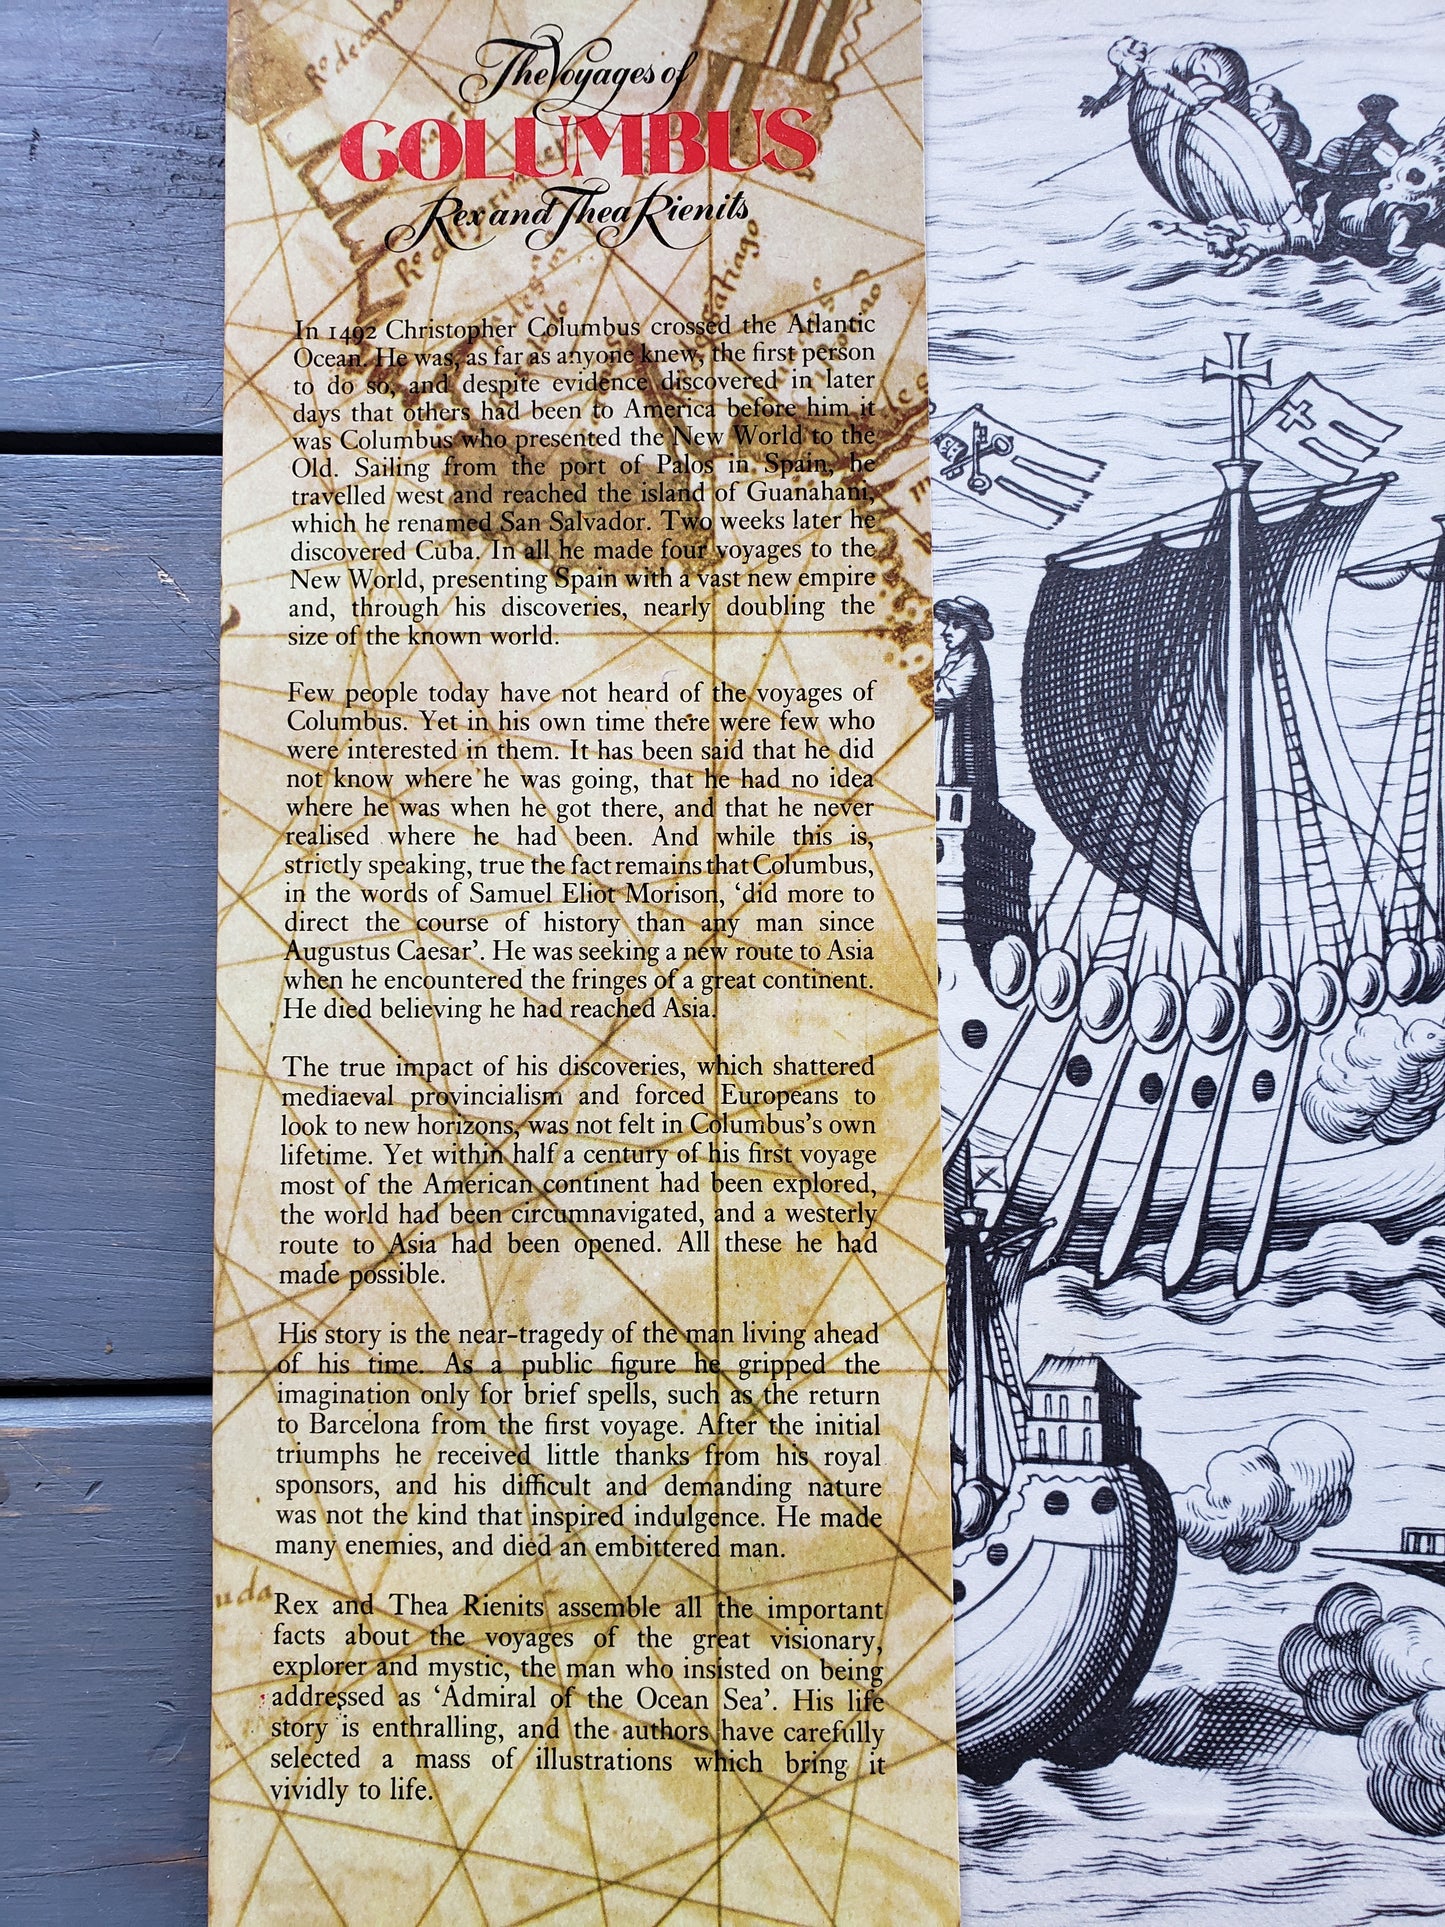 The Voyages of
COLUMBUS
Rex and Thea Rienits
In 1492 Christopher Columbus crossed the Atlantic
Ocean. He was, as far as anyone knew, the first person
to do so, and despite evidence discovered in later
days that others had been to America before him it
was Columbus who presented the New World to the
Old. Sailing from the port of Palos in Spain, he
travelled west and reached the island of Guanahani,
which he renamed San Salvador. Two weeks later he
discovered Cuba. In all he made four voyages to the
New World, presenting Spain with a vast new empire
and, through his discoveries, nearly doubling the
size of the known world.
Few people today have not heard of the voyages of
Columbus. Yet in his own time there were few who
were interested in them. It has been said that he did
not know where he was going, that he had no idea
where he was when he got there, and that he never
realised where he had been. And while this is,
strictly speaking, true the fact remains that Columbus,
in the words of Samuel Eliot Morison, ‘did more to
direct the course of history than any man since
Augustus Caesar’. He was seeking a new route to Asia
when he encountered the fringes of a great continent.
He died believing he had reached Asia.
The true impact of his discoveries, which shattered
mediaeval provincialism and forced Europeans to
look to new horizons, was not felt in Columbus’s own
lifetime. Yet within half a century of his first voyage
most of the American continent had been explored,
the world had been circumnavigated, and a westerly
route to Asia had been opened. All these he had
made possible.
His story is the near-tragedy of the man living ahead
of his time. As a public figure he gripped the
imagination only for brief spells, such as the return
to Barcelona from the first voyage. After the initial
triumphs he received little thanks from his royal
sponsors, and his difficult and demanding nature
was not the kind that inspired indulgence. He made
many enemies, and died an embittered man.
Rex and Thea Rienits assemble all the important
facts about the voyages of the great visionary,
explorer and mystic, the man who insisted on being
addressed as ‘Admiral of the Ocean Sea’. His life
story is enthralling, and the authors have carefully
selected a mass of illustrations which bring it
vividly to life.